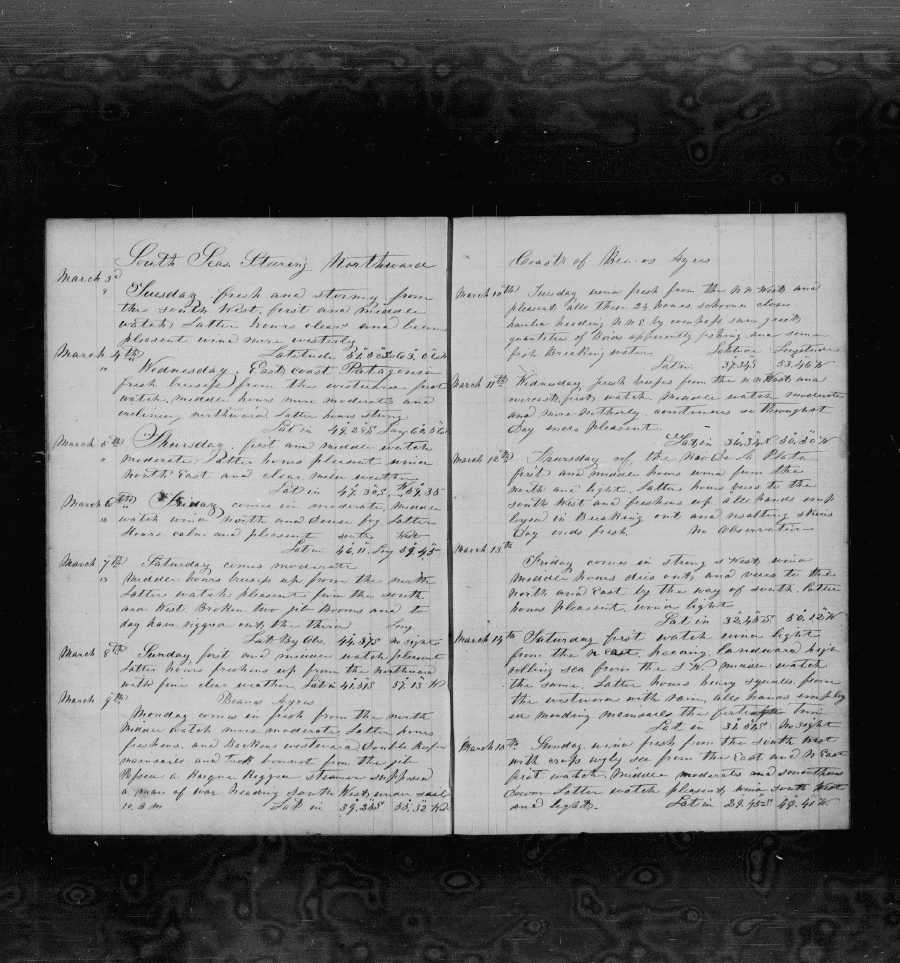 South Seas Stering Northward
March 3d Tuesday fresh and stormy from
the south West, first and middle
watch, Latter hours clear and
pleasent wind more westerly
Latitude
March 4th Wednesday, East coast Patagonia
fresh breeses from the westward first
watch, middle hours more moderate and
northward Latter hours strong
Lat in 49.29S Long
March 5th Thursday, first and middle watch
moderate, Latter hours pleasent wind
North East and clear weather
Lat in 47.30S W 59.35
March 6th Friday comes in moderate, middle
watch wind North and Dense fog Latter
Hours calm and pleasent South West
Lat in 46.11 Long 59.45
March 7th Saturday comes moderate
Middle hours breses up from the north
Latter watch pleasent from the south
and West, Broken two jib Booms and to
day have rigged out the third Long
Lat By Obs. 44.37S no sight
March 8th Sunday first and middle watch pleasent
Latter hours freshens up from the northward
with fine clear weather Lat in 41.31S 57.13 W
March 9th Beanos Ayres
Monday comes in fresh from the north
Middle watch more moderate Latter hours
freshens, and Beckens westward Double Reefed
mainsails and Tuck bonnet from the jib
Passed a Barque Rigged steamer supposed
a man of war heading South West, under sail
10 a m Lat in 39.28S 55.32 Wd
Coast of Ayres
March 10th Tuesday wind fresh from the N N West and
pleasent all these 24 hours schoner close
hauled heading N N E by compass saw great
quantites of Birds apparently fishing and some
fish Breaking water Latitude Longitude
Lat in 37.34S 53.46 W
March 11th Wednesday fresh breeses from the N N West and
overcast, first watch, Middle watch moderate
and more Notherly, continues so throughout
Day ends Pleasent
Lat in
March 12th Thursday off the La Plate
first and middle hours wind from the
north and light, Latter hours vers to the
south West and freshens up all hands emp
loyed in Breaking out and resalting skins
Day ends fresh No Observation
March 13th
Friday comes in strong S West, wind
Middle hours dies out, and vers to the
North and East by the way of south, latter
hours Pleasent, wind light
Lat in 32.45S 50.12 W
March 14th Saturday first watch wind light
from the N East, heading landward high
rolling sea from the S W. Middle watch
the same, Latter hours heavy squalls from
the westward with rain, all hands employ
ed mending mainsails the time
Lat in no sight
March 15th Sunday wind fresh from the south west
with crop ugly sea from the East and N East
first watch, Middle moderate and smoothens
Down Latter watch pleasent, wind south West
and light. Lat in 29.45S 49.40 W